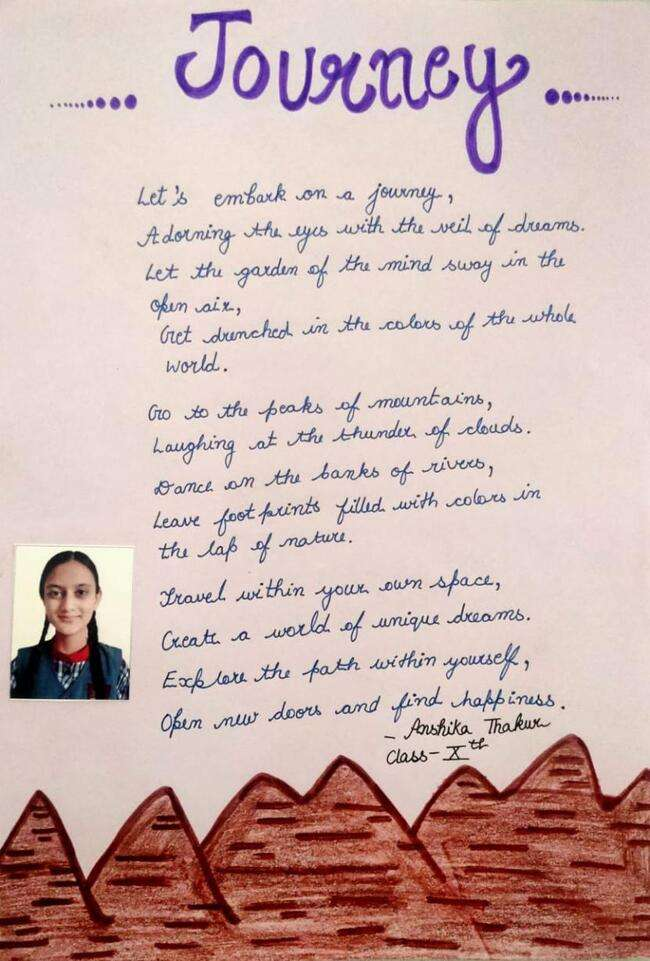 Journey
Let's embark on a journey,
Adorning the eyes with the veil of dreams.
Let the garden of the mind sway in the
open air,
Get drenched in the colors of the whole
world.
Go to the peaks of mountains,
Laughing at the thunder of clouds.
Dance on the banks of rivers,
Leave foot prints filled with colors in
the lap of nature.
Travel within your own space,
Create a world of unique dreams.
Explore the path within yourself,
Open new doors and find happiness.
- Anshika Thakur
Class-Xth